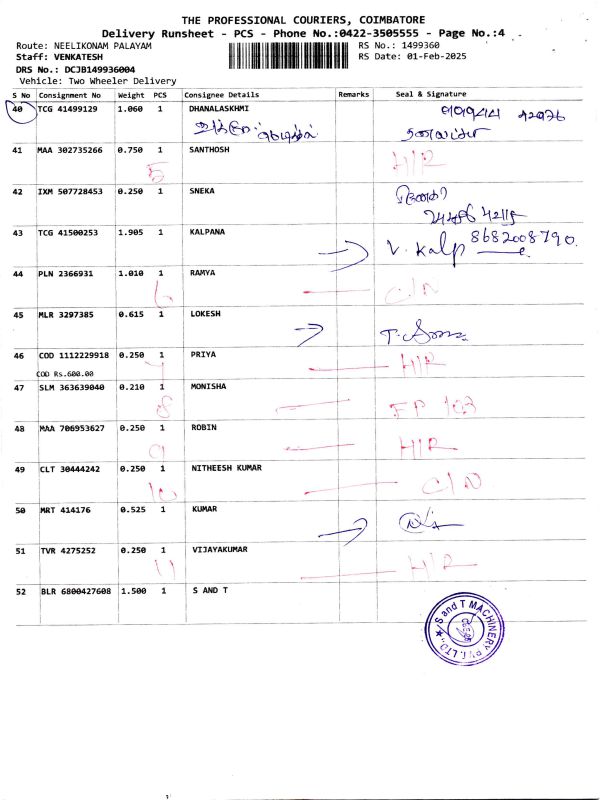 THE PROFESSIONAL COURIERS, COIMBATORE
Delivery Runsheet - PCS - Phone No.:0422-3505555 - Page No.:4
Route: NEELIKONAM PALAYAM RS No.: 1499360
Staff: VENKATESH RS Date: 01-Feb-2025
DRS No.: DCJB149936004
Vehicle: Two Wheeler Delivery
S No Consignment No Weight PCS Consignee Details Remarks Seal & Signature
40 TCG 41499129 1.060 1 DHANALASKHMI
41 MAA 302735266 0.750 1 SANTHOSH H/R
5
42 IXM 507728453 0.250 1 SNEKA
43 TCG 41500253 1.905 1 KALPANA V. Kalp 8682008790.
44 PLN 2366931 1.010 1 RAMYA C/N
6
45 MLR 3297385 0.615 1 LOKESH
46 COD 1112229918 0.250 1 PRIYA H/R
COD Rs.600.00 7
47 SLM 363639040 0.210 1 MONISHA FP 103
8
48 MAA 706953627 0.250 1 ROBIN H/R
9
49 CLT 30444242 0.250 1 NITHEESH KUMAR C/N
10
50 MRT 414176 0.525 1 KUMAR
51 TVR 4275252 0.250 1 VIJAYAKUMAR H/R
11
52 BLR 6800427608 1.500 1 S AND T
S and T MACHINERY PVT. LTD.